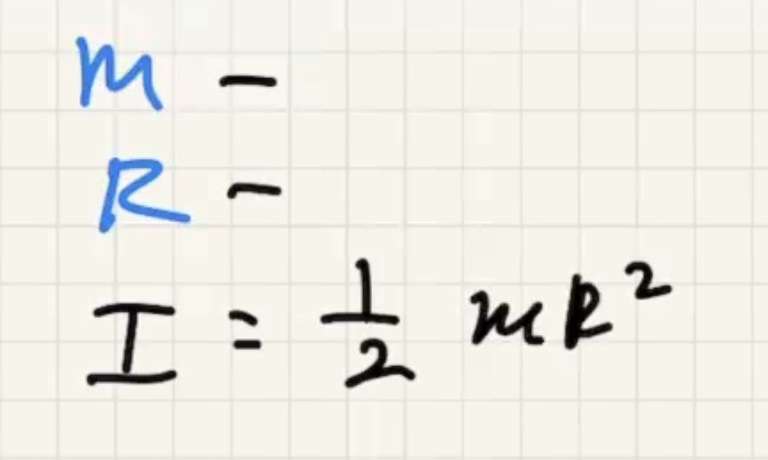 M -
R -
I = 1/2 MR²